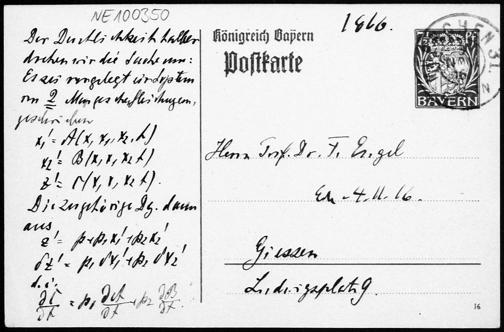 NE100350
Der Deutlichkeit halber
drehen wir die Sache um:
Es sei vorgelegt ein System
von 2 Mongeschen Gleichungen,
geschrieben
x₁' = A(x, x₁, x₂, t)
x₂' = B(x, x₁, x₂, t)
z' = Γ(x, x₁, x₂, t).
Die zugehörige Dg. dann
aus
z' = p + p₁x₁' + p₂x₂'
δz' = p₁ δx₁' + p₂ δx₂'
d. i.
∂Γ/∂t = p₁ ∂A/∂t + p₂ ∂B/∂t.
Königreich Bayern
Postkarte
BAYERN
Herrn Prof. Dr. F. Engel
Giessen
Ludwigsplatz 9.
16